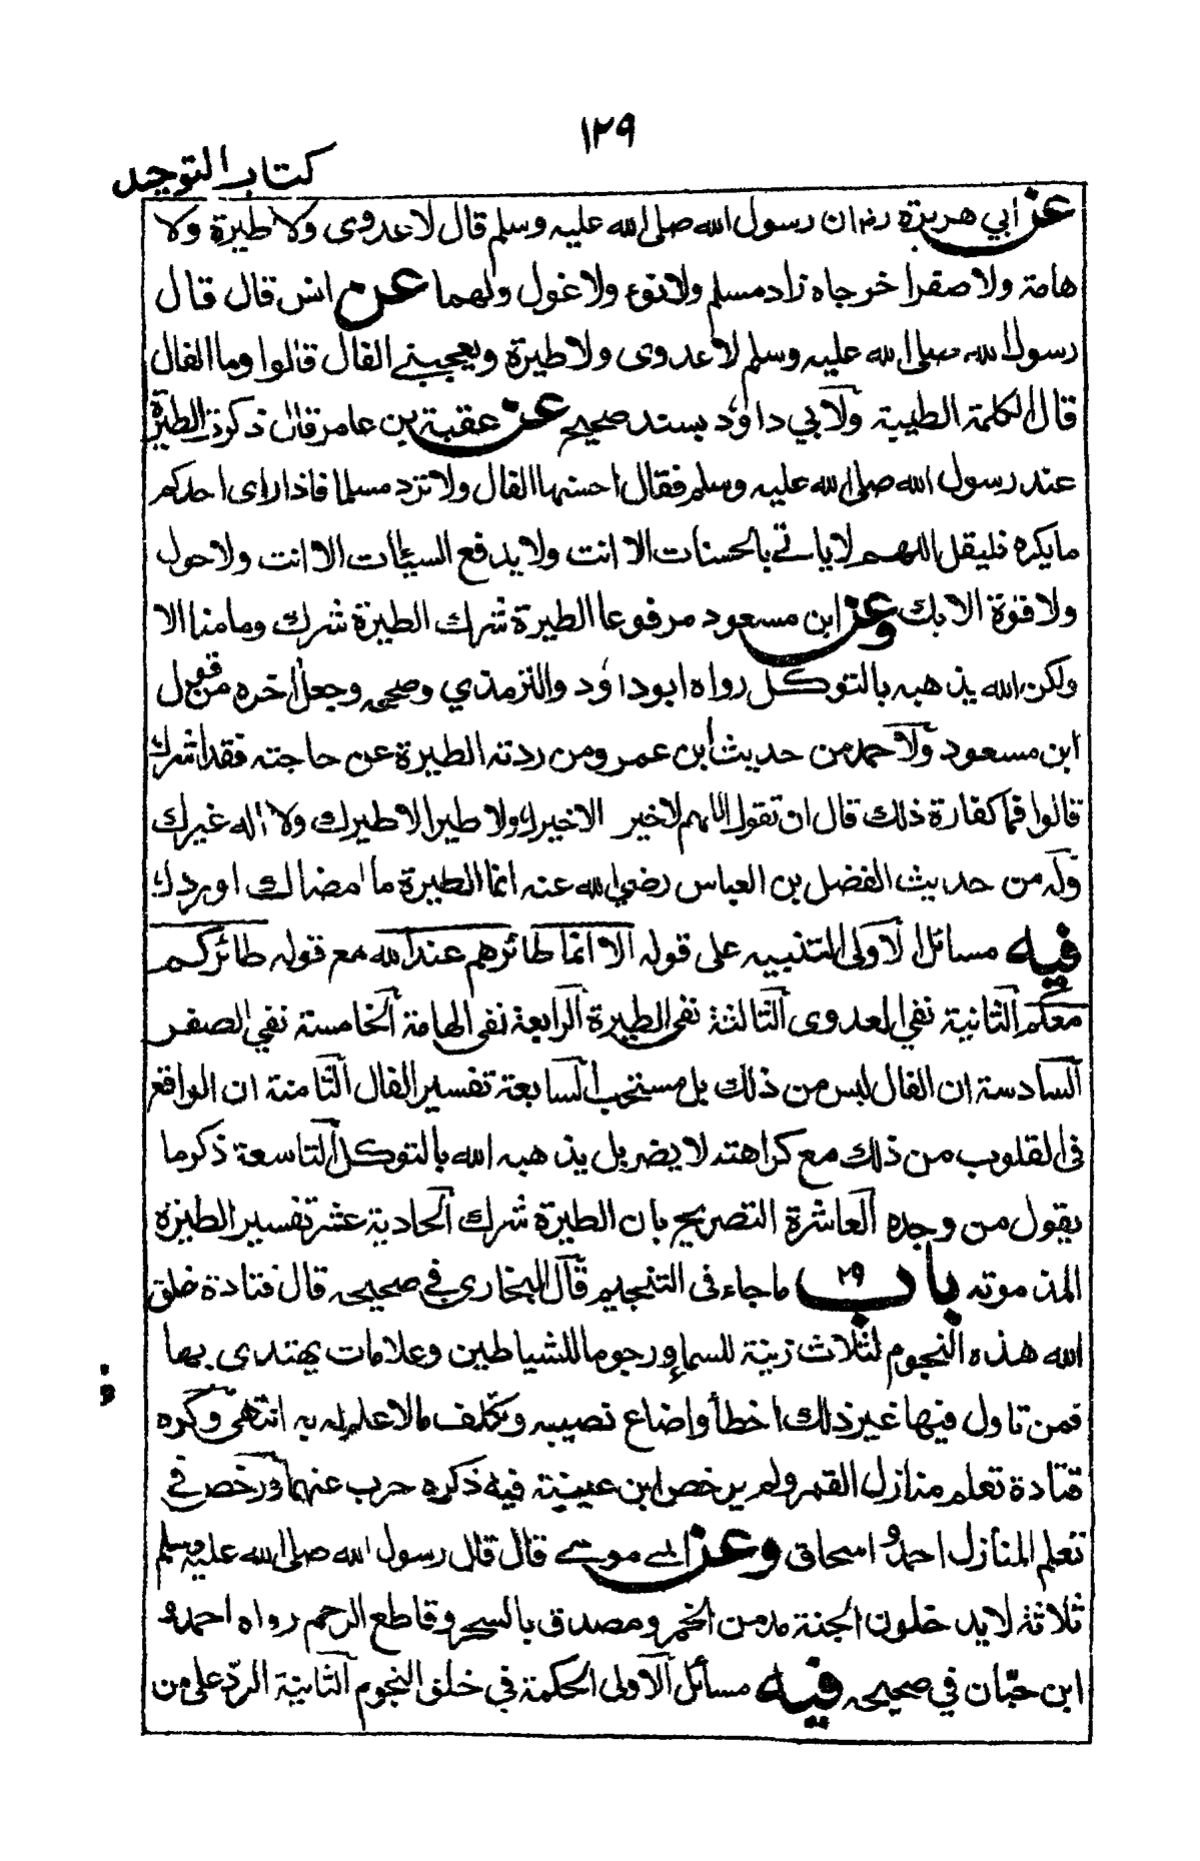 ١٢٩
كتاب التوحيد
عن أبي هريرة رضـ ان رسول الله صلى الله عليه وسلم قال لا عدوى ولا طيرة ولا
هامة ولا صفر اخرجاه زاد مسلم ولا نوء ولا غول ولهما عن انس قال قال
رسول الله صلى الله عليه وسلم لا عدوى ولا طيرة ويعجبني الفال قالوا وما الفال
قال الكلمة الطيبة ولابي داود بسند صحيح عن عقبة بن عامر قال ذكرت الطيرة
عند رسول الله صلى الله عليه وسلم فقال احسنها الفال ولا ترد مسلما فاذا راى احدكم
ما يكره فليقل اللهم لا ياتي بالحسنات الا انت ولا يدفع السيئات الا انت ولا حول
ولا قوة الا بك وعن ابن مسعود مرفوعا الطيرة شرك الطيرة شرك وما منا الا
ولكن الله يذهبه بالتوكل رواه ابو داود والترمذي وصححه وجعل أخره من قول
ابن مسعود ولاحمد من حديث ابن عمرو من ردته الطيرة عن حاجته فقد اشرك
قالوا فما كفارة ذلك قال ان تقول اللهم لا خير الا خيرك ولا طير الا طيرك ولا اله غيرك
وله من حديث الفضل بن العباس رضي الله عنه انما الطيرة ما امضاك او ردك
فيه مسائل الاولى التنبيه على قوله الا انما طائرهم عند الله مع قوله طائركم
معكم الثانية نفي العدوى الثالثة نفى الطيرة الرابعة نفى الهامة الخامسة نفي الصفر
السادسة ان الفال ليس من ذلك بل مستحب السابعة تفسير الفال الثامنة ان الواقع
فى القلوب من ذلك مع كراهته لا يضر بل يذهبه الله بالتوكل التاسعة ذكر ما
يقول من وجده العاشرة التصريح بان الطيرة شرك الحادية عشر تفسير الطيرة
المذمومة باب ٢٩ ما جاء فى التنجيم قال البخاري في صحيحه قال قتادة خلق
الله هذه النجوم لثلاث زينة للسماء ورجوما للشياطين وعلامات يهتدى بها
فمن تاول فيها غير ذلك اخطأ واضاع نصيبه وتكلف مالا علم له به انتهى وكره
قتادة تعلم منازل القمر ولم يرخص ابن عيينة فيه ذكره حرب عنهما ورخص في
تعلم المنازل احمد واسحاق وعن ابي موسى قال قال رسول الله صلى الله عليه وسلم
ثلاثة لا يدخلون الجنة مدمن الخمر ومصدق بالسحر وقاطع الرحم رواه احمد و
ابن حبّان في صحيحه فيه مسائل الاولى الحكمة في خلق النجوم الثانية الردّ على من